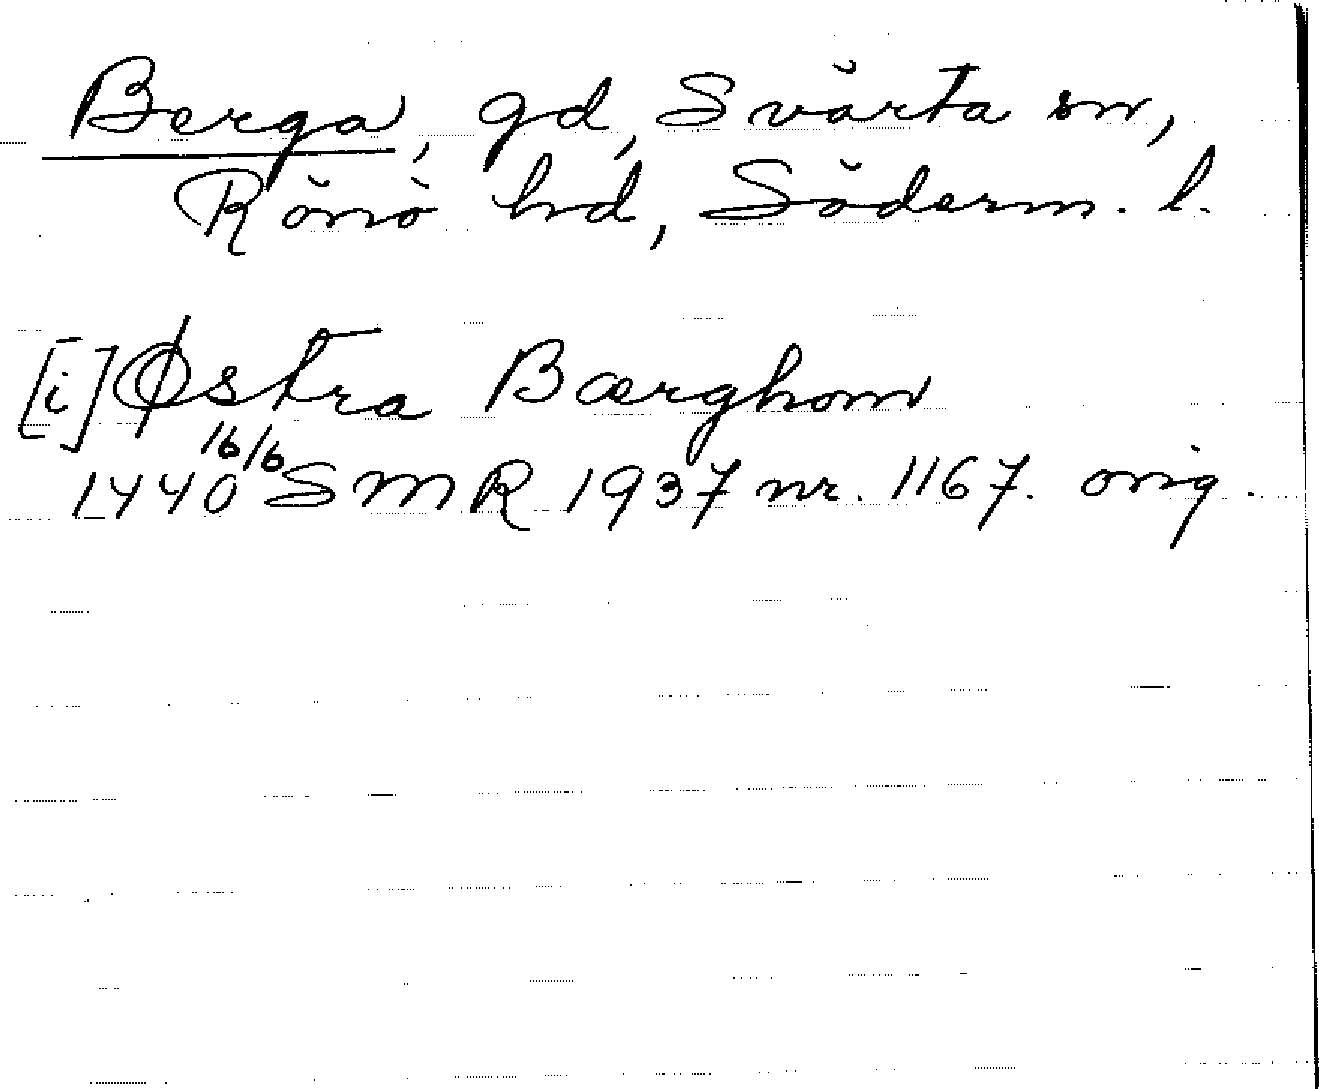 Berga, gd, Svärta sn,
Rönö hd, Söderm. l.
[i] Østra Bærghom
1440 16/6 SMR 1937 nr. 1167. orig.